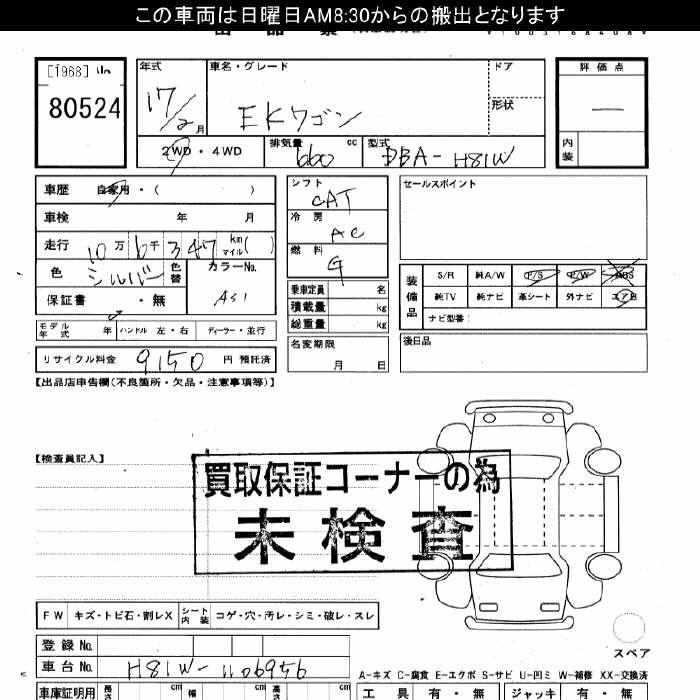 この車両は日曜日AM8:30からの搬出となります
[1968]
80524
年式
17/2月
車名・グレード
EKワゴン
ドア
形状
評価点
内装
2WD・4WD
排気量 660 cc
型式 DBA-H81W
車歴 自家用・( )
車検 年 月
走行 10万6千347 km マイル( )
色 シルバー 色替
カラーNo. A31
保証書 ・無
モデル年式 年 ハンドル 左・右 ディーラー・並行
リサイクル料金 9150 円 預託済
シフト CAT
冷房 AC
燃料 G
乗車定員 名
積載量 kg
総重量 kg
名変期限
月 日
セールスポイント
装備品
S/R 純A/W P/S P/W ABS
純TV 純ナビ 革シート 外ナビ エアB
ナビ型番:
後日品
【出品店申告欄(不良箇所・欠品・注意事項等)】
【検査員記入】
買取保証コーナーの為
未検査
FW キズ・トビ石・割レX シート内装 コゲ・穴・汚レ・シミ・破レ・スレ
スペア
登録No.
車台No. H81W-1106956
A-キズ C-腐食 E-エクボ S-サビ U-凹ミ W-補修 XX-交換済
車庫証明用 長さ cm 幅 cm 高さ cm
工具 有・無 ジャッキ 有・無